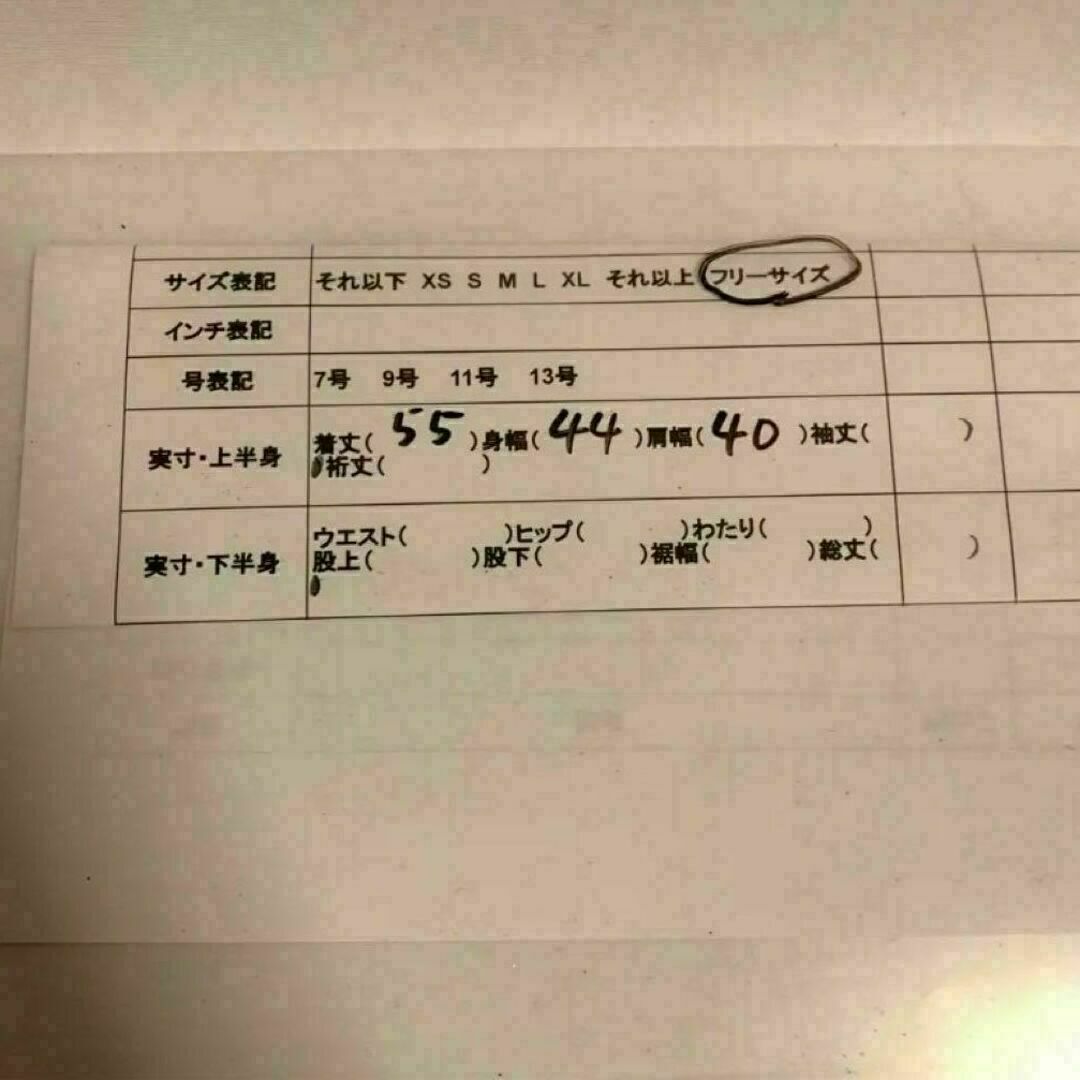 サイズ表記 それ以下 XS S M L XL それ以上 フリーサイズ
インチ表記
号表記 7号 9号 11号 13号
実寸・上半身 着丈( 55 )身幅( 44 )肩幅( 40 )袖丈( )
裄丈( )
実寸・下半身 ウエスト( )ヒップ( )わたり( )
股上( )股下( )裾幅( )総丈( )